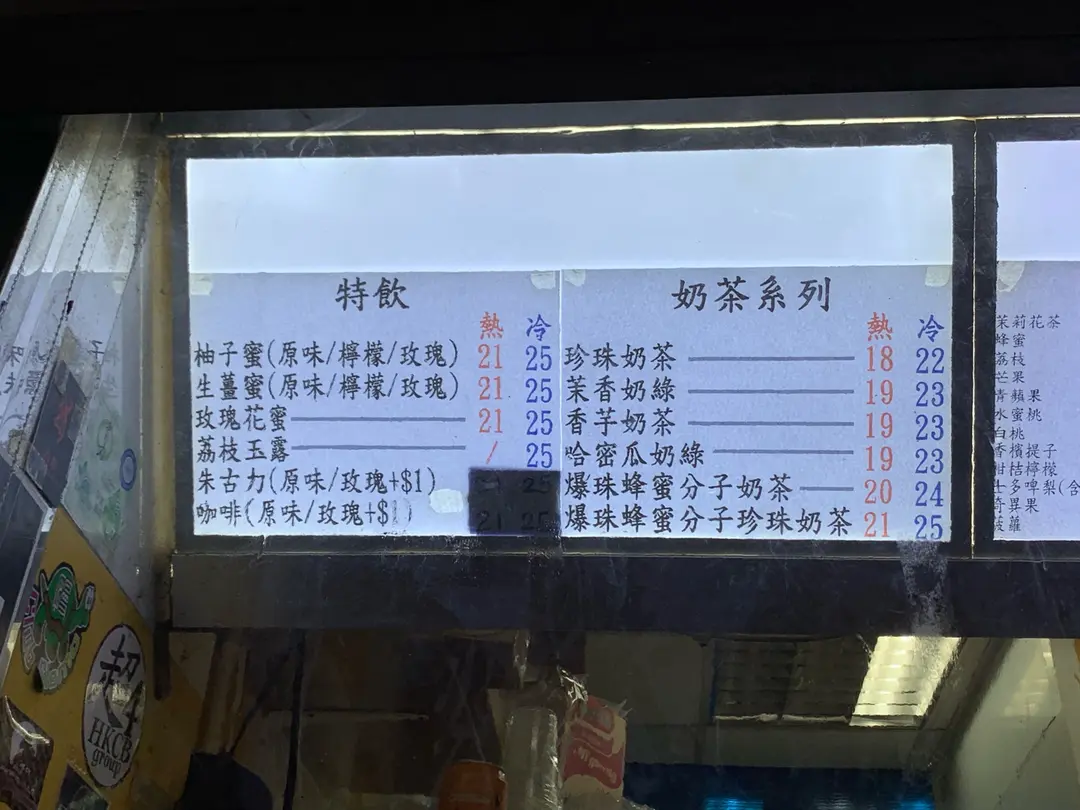 特飲
熱 冷
柚子蜜(原味/檸檬/玫瑰) 21 25
生薑蜜(原味/檸檬/玫瑰) 21 25
玫瑰花蜜 21 25
荔枝玉露 / 25
朱古力(原味/玫瑰+$1) 25
咖啡(原味/玫瑰+$1) 21 25
奶茶系列
熱 冷
珍珠奶茶 18 22
茉香奶綠 19 23
香芋奶茶 19 23
哈密瓜奶綠 19 23
爆珠蜂蜜分子奶茶 20 24
爆珠蜂蜜分子珍珠奶茶 21 25
茉莉花茶
蜂蜜
荔枝
芒果
青蘋果
水蜜桃
白桃
香檳提子
柑桔檸檬
士多啤梨(含
奇異果
菠蘿
超
HKCB
group